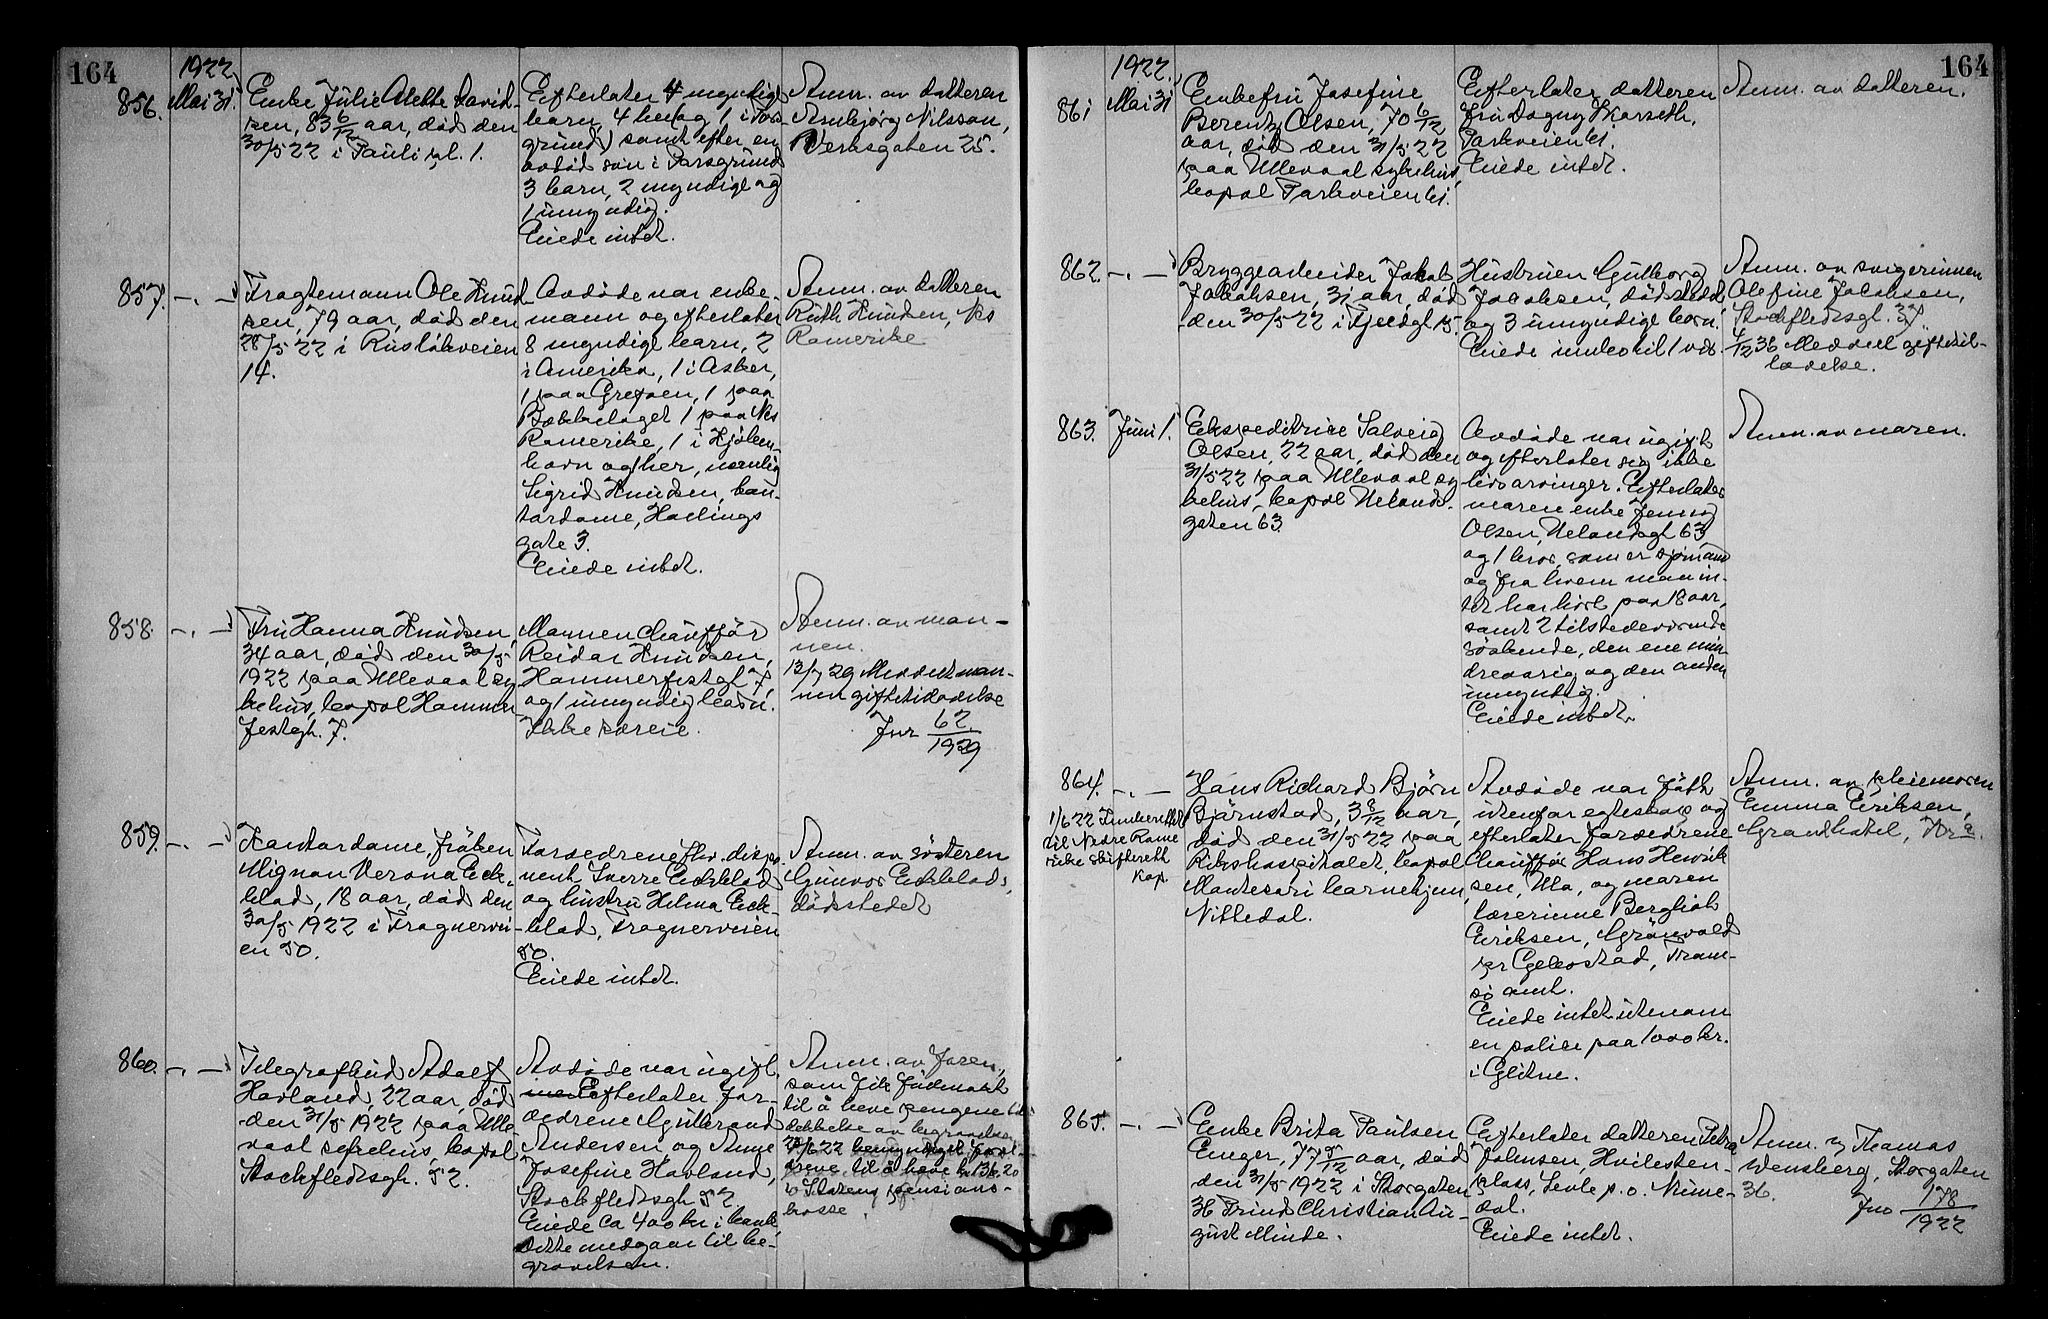 164
1922
856. Mai 31.
Enke Julie Alette David-
sen, 83 6/12 aar, død den
30/5 22 i Pauli pl. 1.
Efterlater 4 myndige
barn, 4 her og 1 i Pors-
grund, samt efter en
avdød søn i Porsgrund
3 barn, 2 myndige og
1 umyndig.
Eiede intet.
Anm. av datteren
Asnbjørg Nilsson,
Verksgaten 25.
857. -"-
Fragtemann Ole Knud-
sen, 79 aar, død den
28/5 22 i Ruseløkveien
14.
Avdøde var enke-
mann og efterlater
8 myndige barn, 2
i Amerika, 1 i Asker,
1 paa Grefsen, 1 paa
Bækkelaget 1 paa Nes
Romerike, 1 i Kjøben-
havn og 1 her, nemlig
Sigrid Knudsen, kon-
tordame, Harlings
gate 3.
Eiede intet.
Anm. av datteren
Ruth Knudsen, Nes
Romerike
858. -"-
Fru Hanna Knudsen,
34 aar, død den 30/5
1922 paa Ullevaal sy-
kehus, bopæl Hammer-
festgt. 7.
Mannen chauffør
Reidar Knudsen,
Hammerfestgt 7,
og 1 umyndig barn.
Ikke særeie.
Anm. av man-
nen.
13/7 29 Meddelt man-
nen giftetilladelse
Jnr 62/1929
859. -"-
Kontordame, frøken
Mignon Verona Eck-
blad, 18 aar, død den
30/5 1922 i Frognervei-
en 50.
Forældrene fhv. dispo-
nent Sverre Eckblad
og hustru Helma Eck-
blad, Frognerveien
50.
Eiede intet.
Anm. av søsteren
Gunvor Eckblad,
dødsstedet
860. -"-
Telegrafbud Adolf
Havland, 22 aar, død
den 31/5 1922 paa Ulle-
vaal sykehus, bopæl
Stockfletsgt. 52.
Avdøde var ugift.
Efterlater for-
ældrene Gulbrand
Andersen og Anne
Josefine Havland,
Stockfletsgt 52
Eiede ca 400 kr i bank,
dette medgaar til be-
gravelsen.
Anm. av faren,
som fik fuldmakt
til å heve pengene til
dekkelse av begravelsen
/6 22 bemyndiget for-
ældrene til å heve kr 136.20
i Statens pensions-
kasse
164
1922.
861 Mai 31
Enkefru Josefine
Berentz Olsen, 70 6/12
aar, død den 31/5 22
paa Ullevaal sykehus,
bopæl Parkveien 61.
Efterlater datteren
Fru Dagny Korseth,
Parkveien 61.
Eiede intet.
Anm. av datteren.
862 -"-
Bryggearbeider Jakob
Jakobsen, 31 aar, død
den 30/5 22 i Fjeldgt 15.
Hustruen Gudborg
Jacobsen, dødsstedet
og 3 umyndige barn.
Eiede innbo til 1 vær.
Anm. av svigerinnen
Olefine Jacobsen,
Stockfletsgt. 37
4/12 36 Meddelt giftetil-
ladelse.
863. Juni 1.
Ekspeditrice Solveig
Olsen, 22 aar, død den
31/5 22 paa Ullevaal sy-
kehus, bopæl Uelands-
gaten 63.
Avdøde var ugift
og efterlater sig ikke
livsarvinger. Efterlater
moren enke Jenny
Olsen, Uelandsgt 63,
og 1 bror, som er sjømann
og fra hvem man in-
tet har hørt paa 18 aar,
samt 2 tilstedeværende
søskende, den ene min-
dreaarig og den anden
umyndig.
Eiede intet.
Anm. av moren.
864. -"-
1/6 22 Innberettet
til Nedre Rome-
rike skifterett
Kop.
Hans Richard Bjørn
Bjørnstad, 3 8/12 aar,
død den 31/5 22 paa
Rikshospitalet, bopæl
Montesori barnehjem,
Nittedal.
Avdøde var født
utenfor egteskap og
efterlater forældrene
Chauffør Hans Henrik
sen, Ula, og moren
lærerinne Bergliot
Eriksen, Grønvold
pr Gebostad, Trom-
sø amt.
Eiede intet utenom
en police paa 1000 kr.
i Glitne.
Anm. av pleiemoren
Emma Eriksen,
Grandhotel, Hr
865. -"-
Enke Brita Paulsen
Enger, 77 5/12 aar, død
den 31/5 1922 i Storgaten
36 Trind Christian Au-
gust Minde.
Efterlater datteren Petra
Johnsen, Hvilesten-
plass, Svele p.o. Nume-
dal.
Eiede intet.
Anm. av Thomas
Wensberg, Storgaten
36.
Jno 178/1922